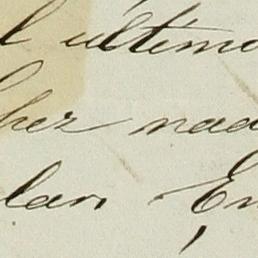 l último
her nad
lan En